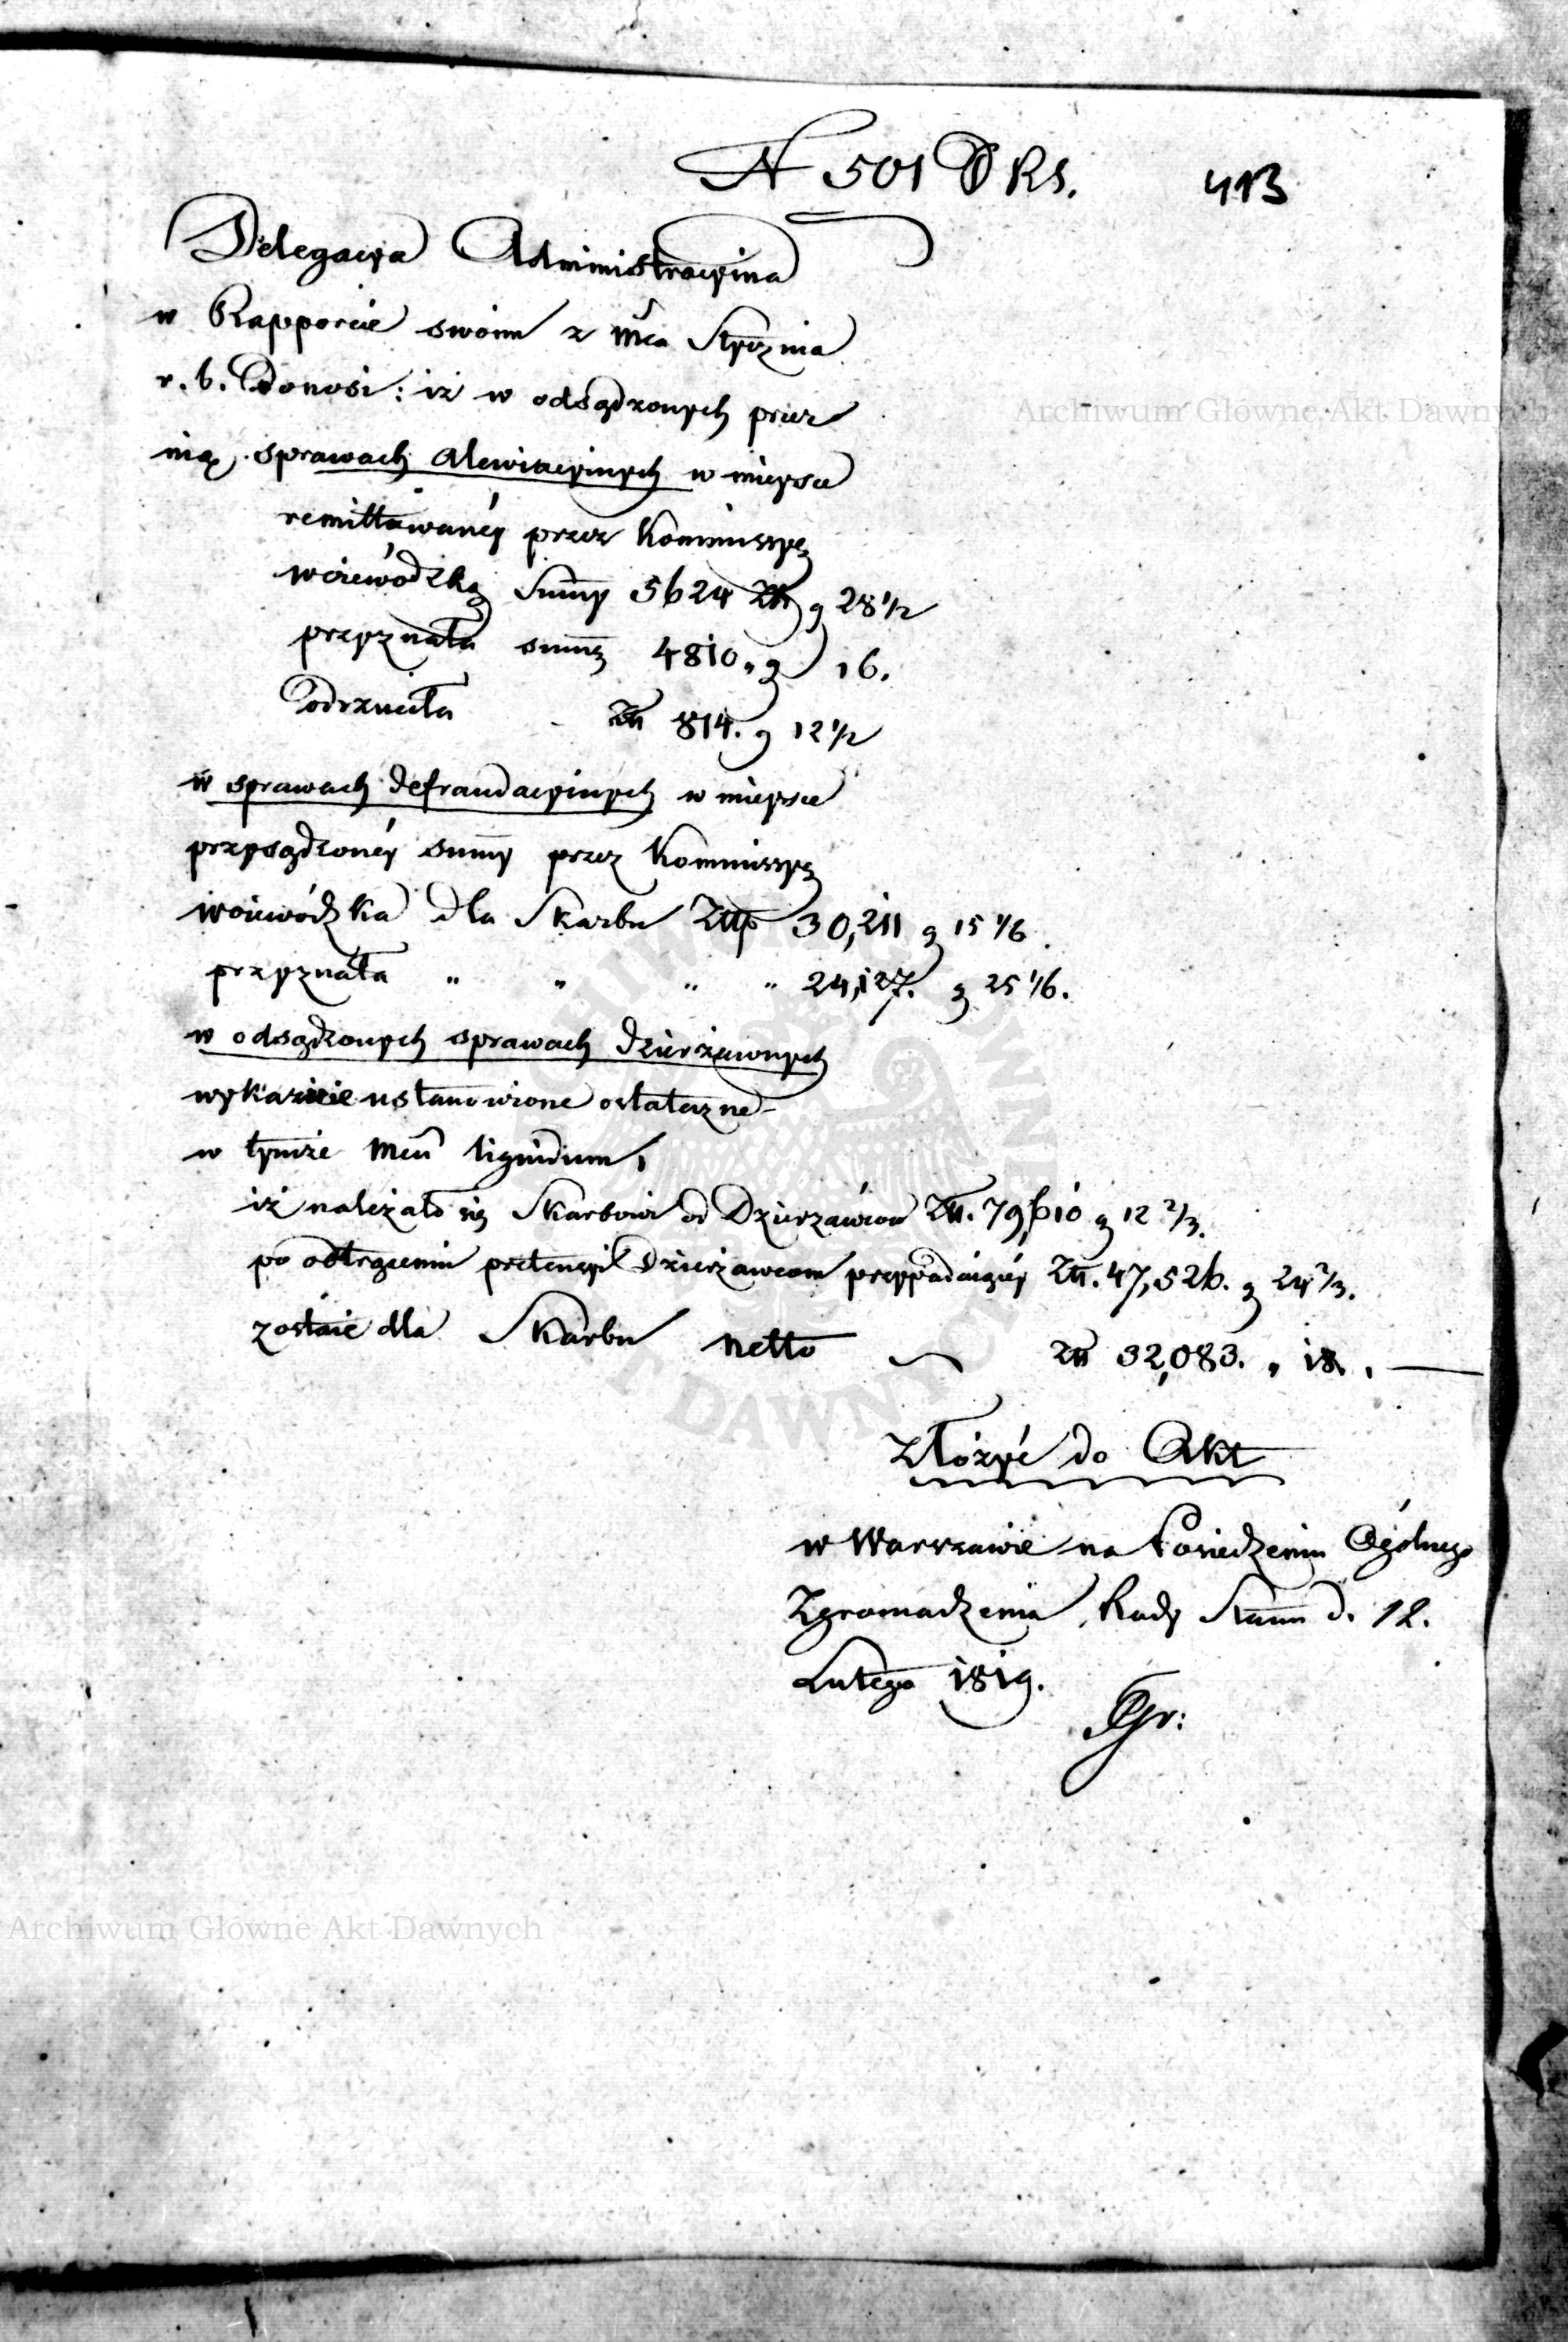 N 501 D RS. 413
Delegacya Administracyina
w Rapporcie swoim z mca Stycznia
r. b. Donosi: iż w odsądzonych przez
nią sprawach alewiacyinych w mieysce
remittowanéy przez Kommissyę
woiewódzką Summy 5624 Zł g 28 1/2
przyznała summę 4810 „ g 16.
Odrzuciła Zł 814. g 12 1/2
w sprawach defraudacyinych w mieysce
przysądzonéy summy przez Kommissyę
woiewódzka dla Skarbu Złlp 30,211 g 15 1/6.
przyznała „ „ „ „ 24,127. g 25 1/6.
w odsądzonych sprawach dzierżawnych
ustanowione ostateczne
w tymże mcu liquidum,
iż należało się Skarbowi od Dzierżawców Zł. 79,610 g 12 2/3.
po odtrąceniu pretensyi Dzierżawcom przypadaiącéy Zł. 47,526. g 24 2/3.
zostaie dla Skarbu netto Zł 32,083. „ 18. „
Złożyć do Akt
w Warszawie na Posiedzeniu Ogólnego
Zgromadzenia Rady Stanu d. 12.
Lutego 1819.
Archiwum Główne Akt Dawnych
Archiwum Główne Akt Dawnych